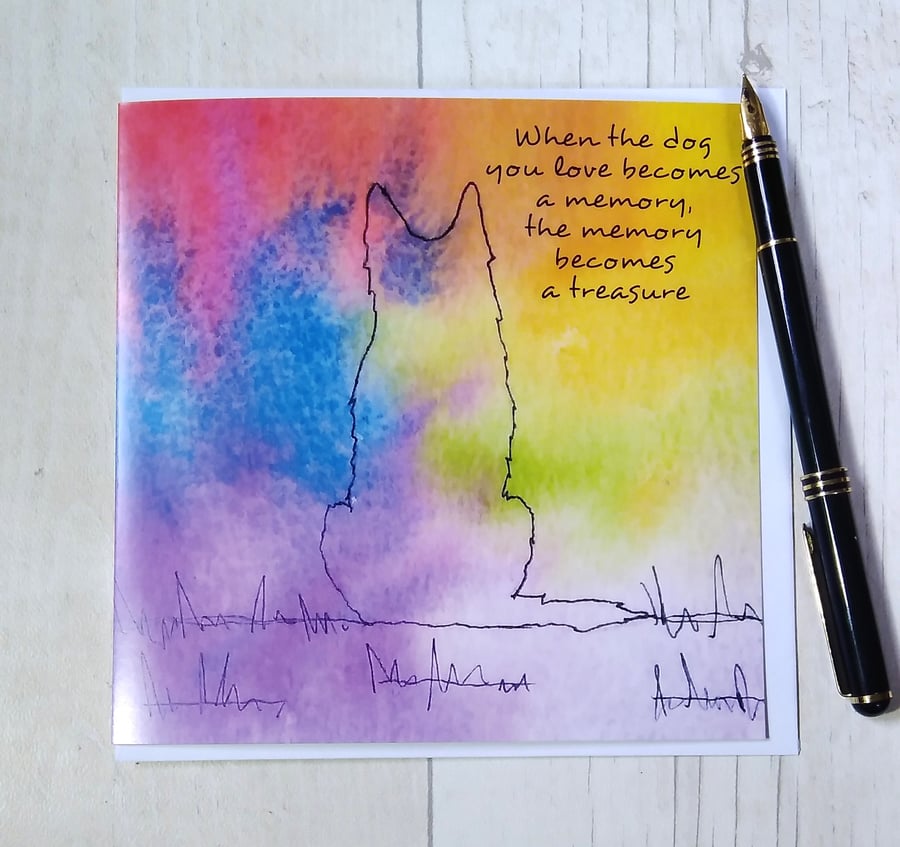 When the dog
you love becomes
a memory,
the memory
becomes
a treasure